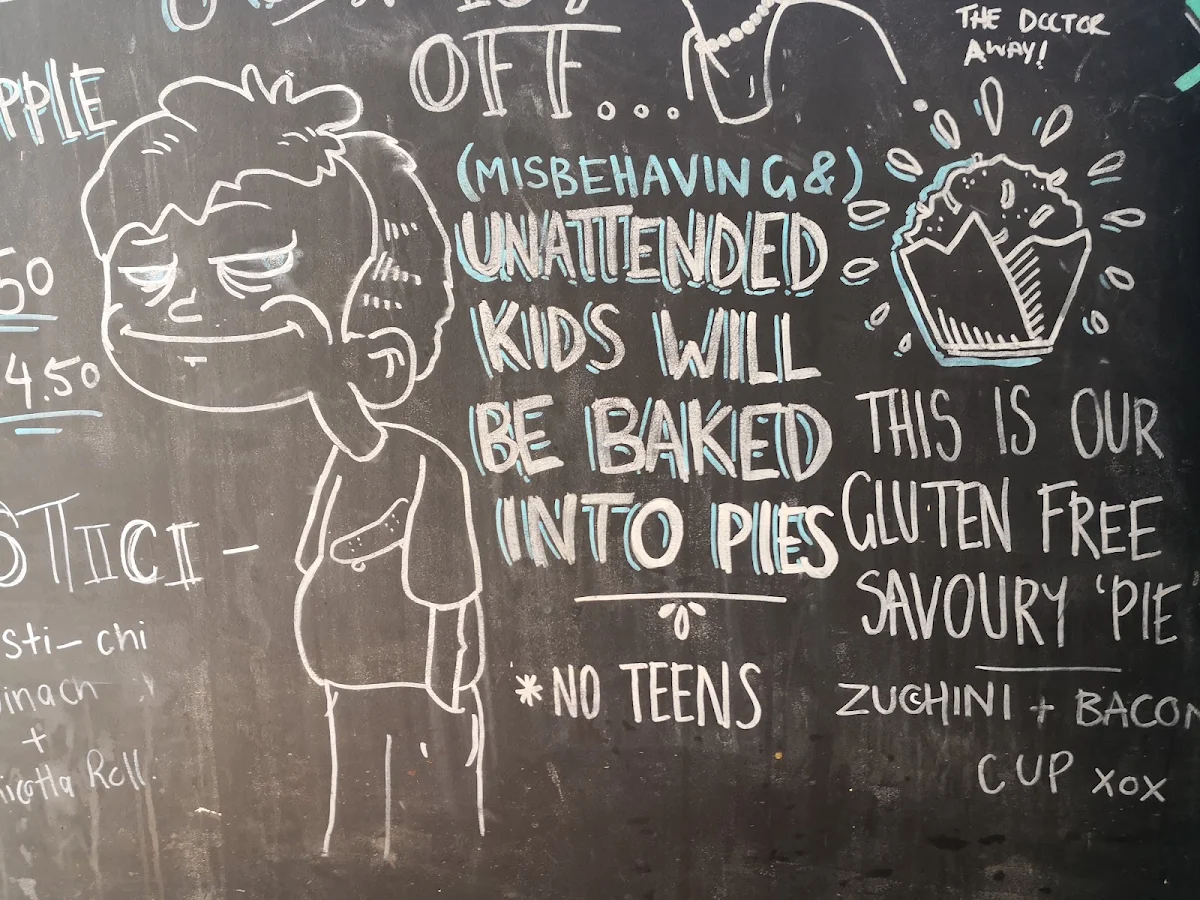 OFF...
THE DOCTOR
AWAY!
PPLE
50
4.50
STICI-
sti-chi
inach
+
icotta Roll.
(MISBEHAVING &)
UNATTENDED
KIDS WILL
BE BAKED
INTO PIES
*NO TEENS
THIS IS OUR
GLUTEN FREE
SAVOURY 'PIE'
ZUCHINI + BACON
CUP xox